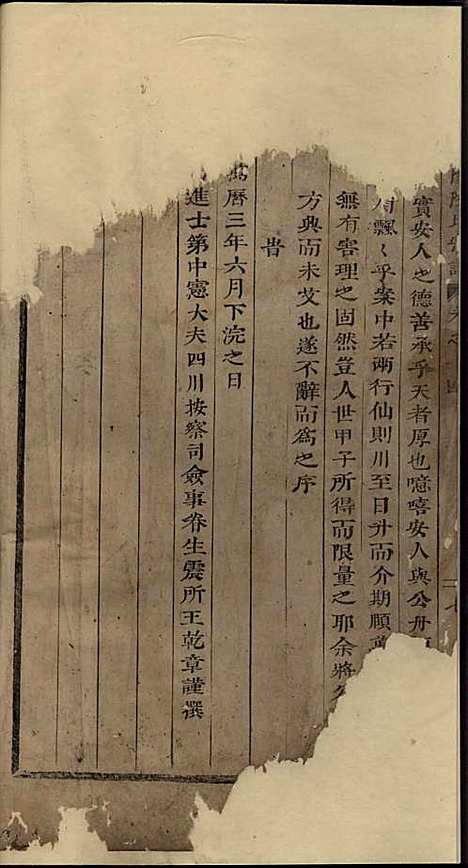 實安人之德善承乎天者厚也噫嘻安人與公册
飄〻乎案中若兩行仙則川至日升而介期順
無有害理之固然豈人世甲子所得而限量之耶余將
方興而未艾也遂不辭而爲之序
旹
萬曆三年六月下浣之日
進士第中憲大夫四川按察司僉事眷生震所王乾章謹撰